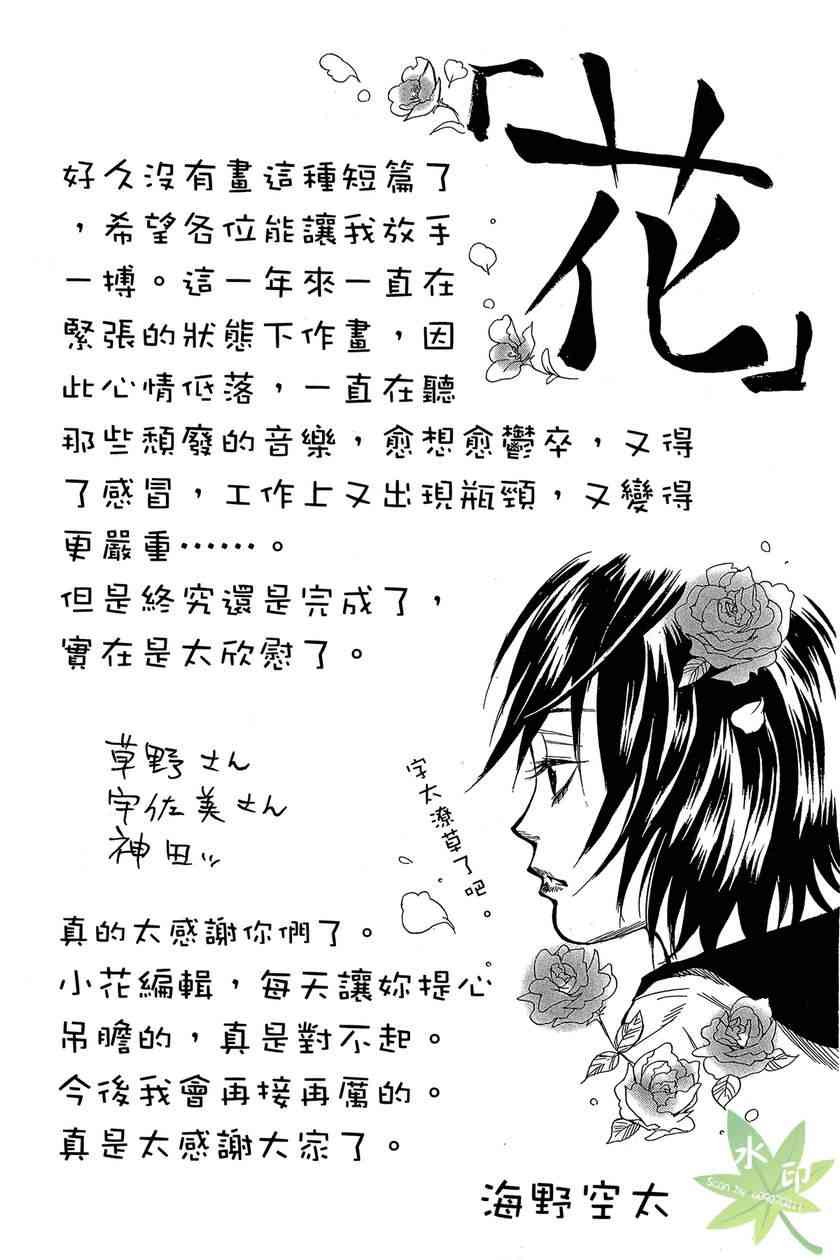 「花」
好久沒有畫這種短篇了
，希望各位能讓我放手
一搏。這一年來一直在
緊張的狀態下作畫，因
此心情低落，一直在聽
那些頹廢的音樂，愈想愈鬱卒，又得
了感冒，工作上又出現瓶頸，又變得
更嚴重……。
但是終究還是完成了，
實在是太欣慰了。
草野さん
宇佐美さん
神田
字太潦草了吧。
真的太感謝你們了。
小花編輯，每天讓妳提心
吊膽的，真是對不起。
今後我會再接再厲的。
真是太感謝大家了。
海野空太
水印